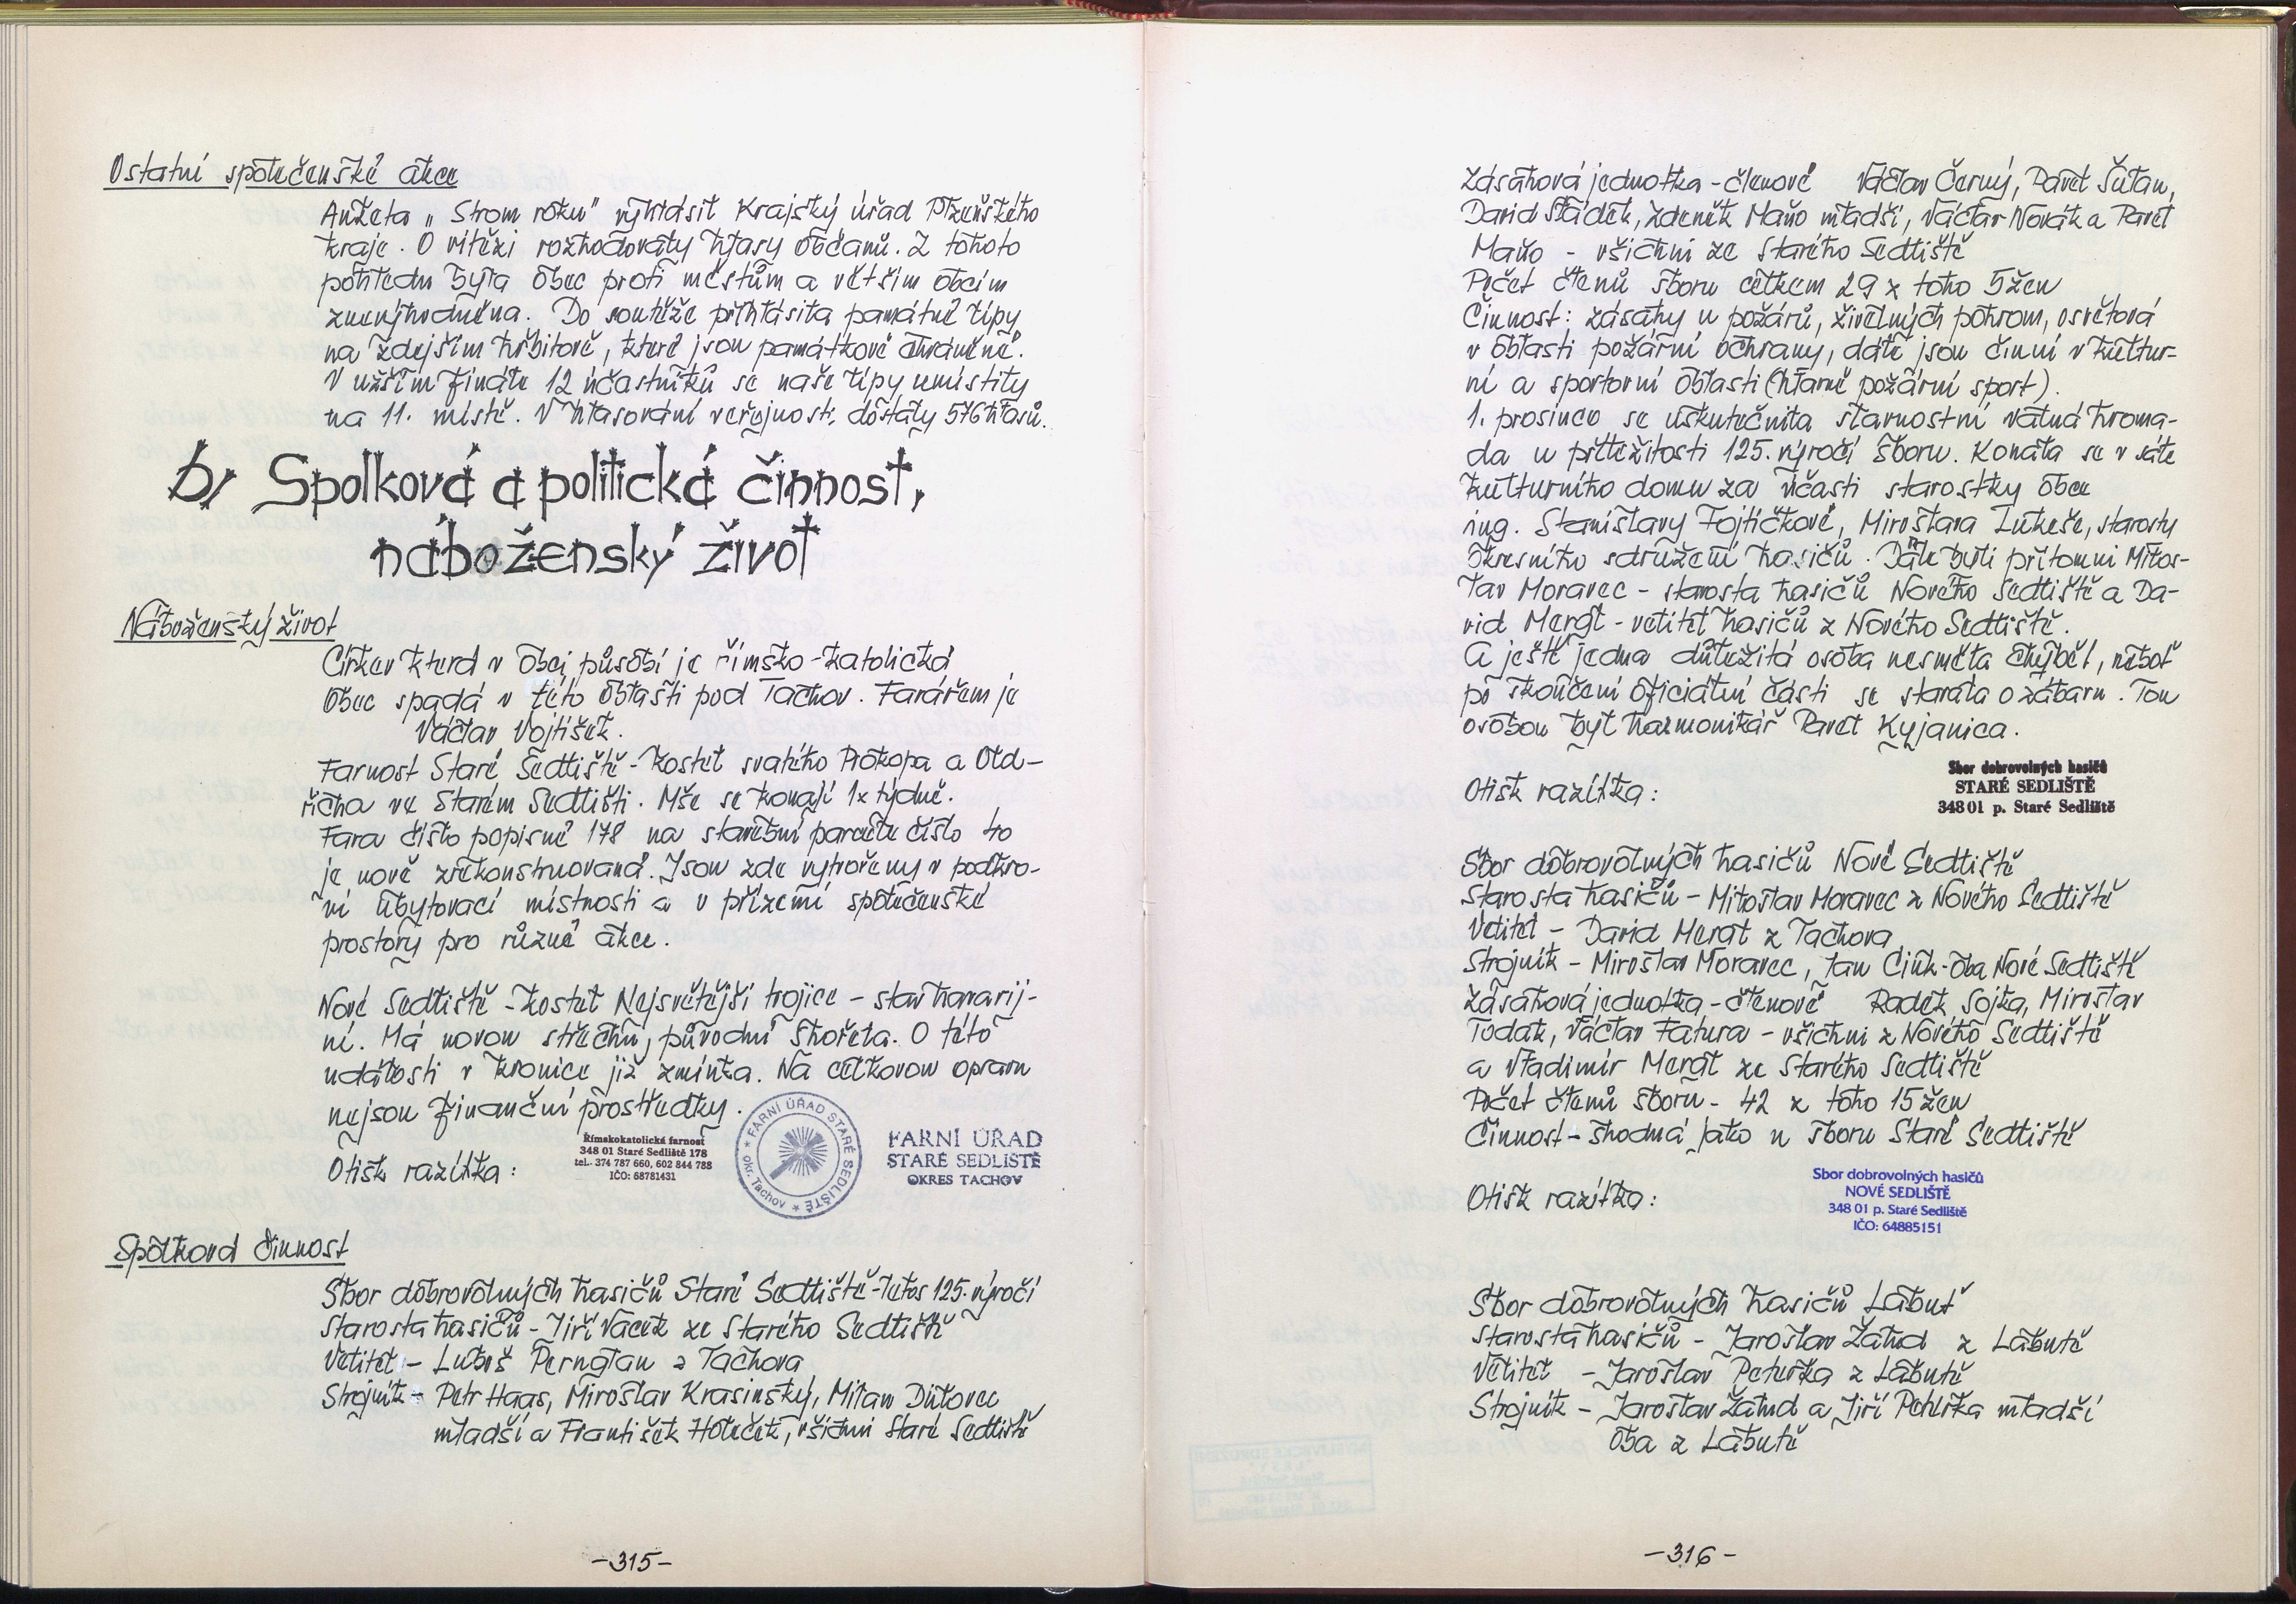 Ostatní společenské akce
Anketa „Strom roku" vyhlásil Krajský úřad Plzeňského
kraje. O vítězi rozhodovaly hlasy občanů. Z tohoto
pohledu byla obec proti městům a větším obcím
znevýhodněna. Do soutěže přihlásila památné lípy
na zdejším hřbitově, které jsou památkově chráněné.
V užším finále 12 účastníků se naše lípy umístily
na 11. místě. V hlasování veřejnosti dostaly 576 hlasů.
b/ Spolková a politická činnost,
náboženský život
Náboženský život
Církev která v obci působí je římsko-katolická
Obec spadá v této oblasti pod Tachov. Farářem je
Václav Vojtíšek.
Farnost Staré Sedliště - kostel svatého Prokopa a Old-
řicha ve Starém Sedlišti. Mše se konají 1x týdně.
Fara číslo popisné 178 na stavební parcele číslo 40
je nově zrekonstruovaná. Jsou zde vytvořeny v podkro-
ví ubytovací místnosti a v přízemí společenské
prostory pro různé akce.
Nové Sedliště - kostel Nejsvětější trojice - stav havarij-
ní. Má novou střechu, původní shořela. O této
události v kronice již zmínka. Na celkovou opravu
nejsou finanční prostředky.
Otisk razítka:
Římskokatolická farnost
348 01 Staré Sedliště 178
tel. 374 787 660, 602 844 788
IČO: 68781431
* FARNÍ ÚŘAD STARÉ SEDLIŠTĚ * okr. Tachov
FARNÍ ÚŘAD
STARÉ SEDLIŠTĚ
OKRES TACHOV
Spolková činnost
Sbor dobrovolných hasičů Staré Sedliště - letos 125. výročí
Starosta hasičů - Jiří Vacek ze Starého Sedliště
Velitel - Luboš Pernglau z Tachova
Strojník - Petr Haas, Miroslav Krasinský, Milan Dulovec
mladší a František Holeček, všichni Staré Sedliště
-315-
Zásahová jednotka - členové Václav Černý, Pavel Šulan,
David Sládek, Zdeněk Maňo mladší, Václav Novák a Pavel
Maňo - všichni ze Starého Sedliště
Počet členů sboru celkem 29 z toho 5 žen
Činnost: zásahy u požárů, živelných pohrom, osvětová
v oblasti požární ochrany, dále jsou činní v kultur-
ní a sportovní oblasti (hlavně požární sport).
1. prosince se uskutečnila slavnostní valná hroma-
da u příležitosti 125. výročí sboru. Konala se v sále
kulturního domu za účasti starostky obce
ing. Stanislavy Fojtíčkové, Miroslava Lukeše, starosty
okresního sdružení hasičů. Dále byli přítomni Milos-
lav Moravec - starosta hasičů Nového Sedliště a Da-
vid Mergl - velitel hasičů z Nového Sedliště.
A ještě jedna důležitá osoba nesměla chybět, neboť
po skončení oficiální části se starala o zábavu. Tou
osobou byl harmonikář Pavel Kyjanica.
Otisk razítka:
Sbor dobrovolných hasičů
STARÉ SEDLIŠTĚ
348 01 p. Staré Sedliště
Sbor dobrovolných hasičů Nové Sedliště
Starosta hasičů - Miloslav Moravec z Nového Sedliště
Velitel - David Mergl z Tachova
Strojník - Miroslav Moravec, Jan Cink - oba Nové Sedliště
Zásahová jednotka - členové Radek Sojka, Miroslav
Todak, Václav Fatura - všichni z Nového Sedliště
a Vladimír Mergl ze Starého Sedliště
Počet členů sboru - 42 z toho 15 žen
Činnost - shodná jako u sboru Staré Sedliště
Otisk razítka:
Sbor dobrovolných hasičů
NOVÉ SEDLIŠTĚ
348 01 p. Staré Sedliště
IČO: 64885151
Sbor dobrovolných hasičů Labuť
Starosta hasičů - Jaroslav Žalud z Labutě
Velitel - Jaroslav Peteřka z Labutě
Strojník - Jaroslav Žalud a Jiří Pehlška mladší
oba z Labutě
-316-